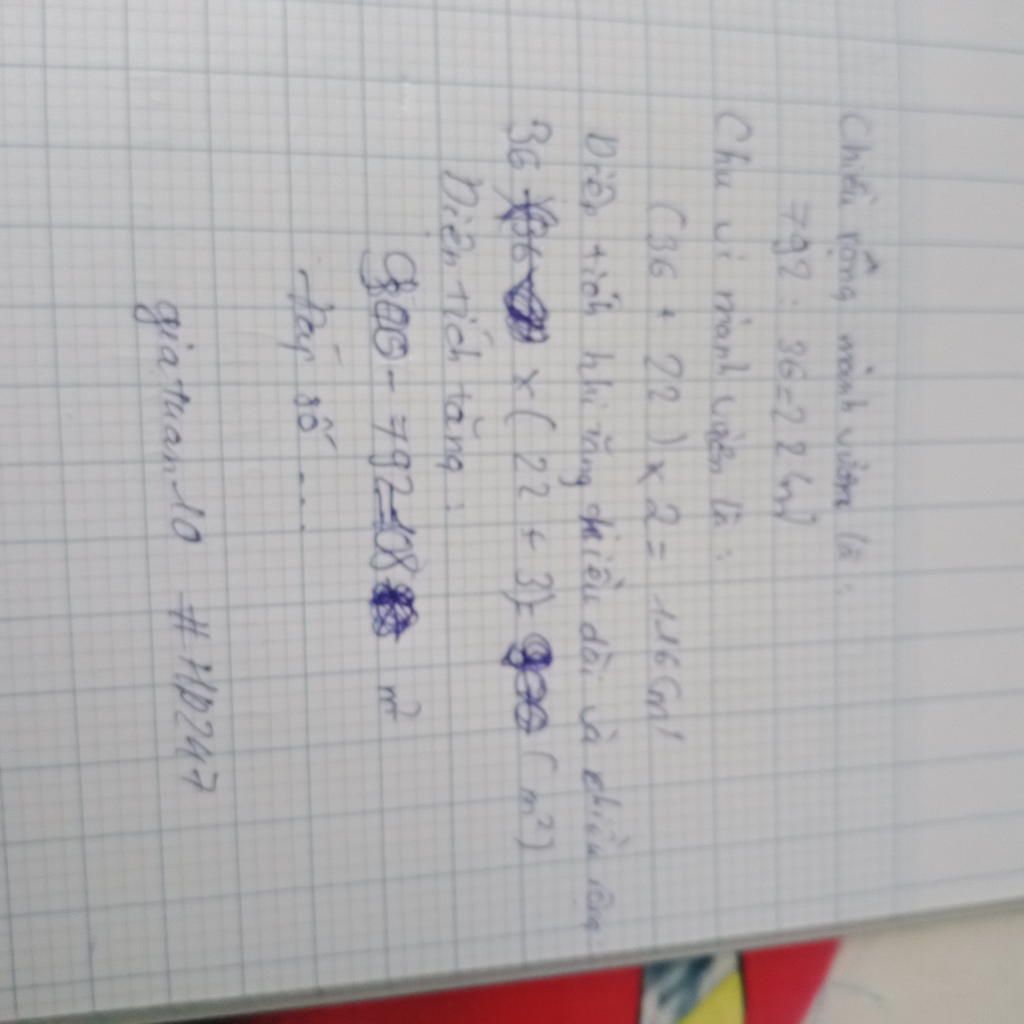 Chiều rộng mảnh vườn là:
792 : 36 = 22 (m)
Chu vi mảnh vườn là:
(36 + 22) x 2 = 116 (m)
Diện tích khi tăng chiều dài và chiều rộng
36 x (22 + 3) = 900 (m²)
Diên tích tăng:
900 - 792 = 108 m²
Đáp số ...
giatuan10 #HD247